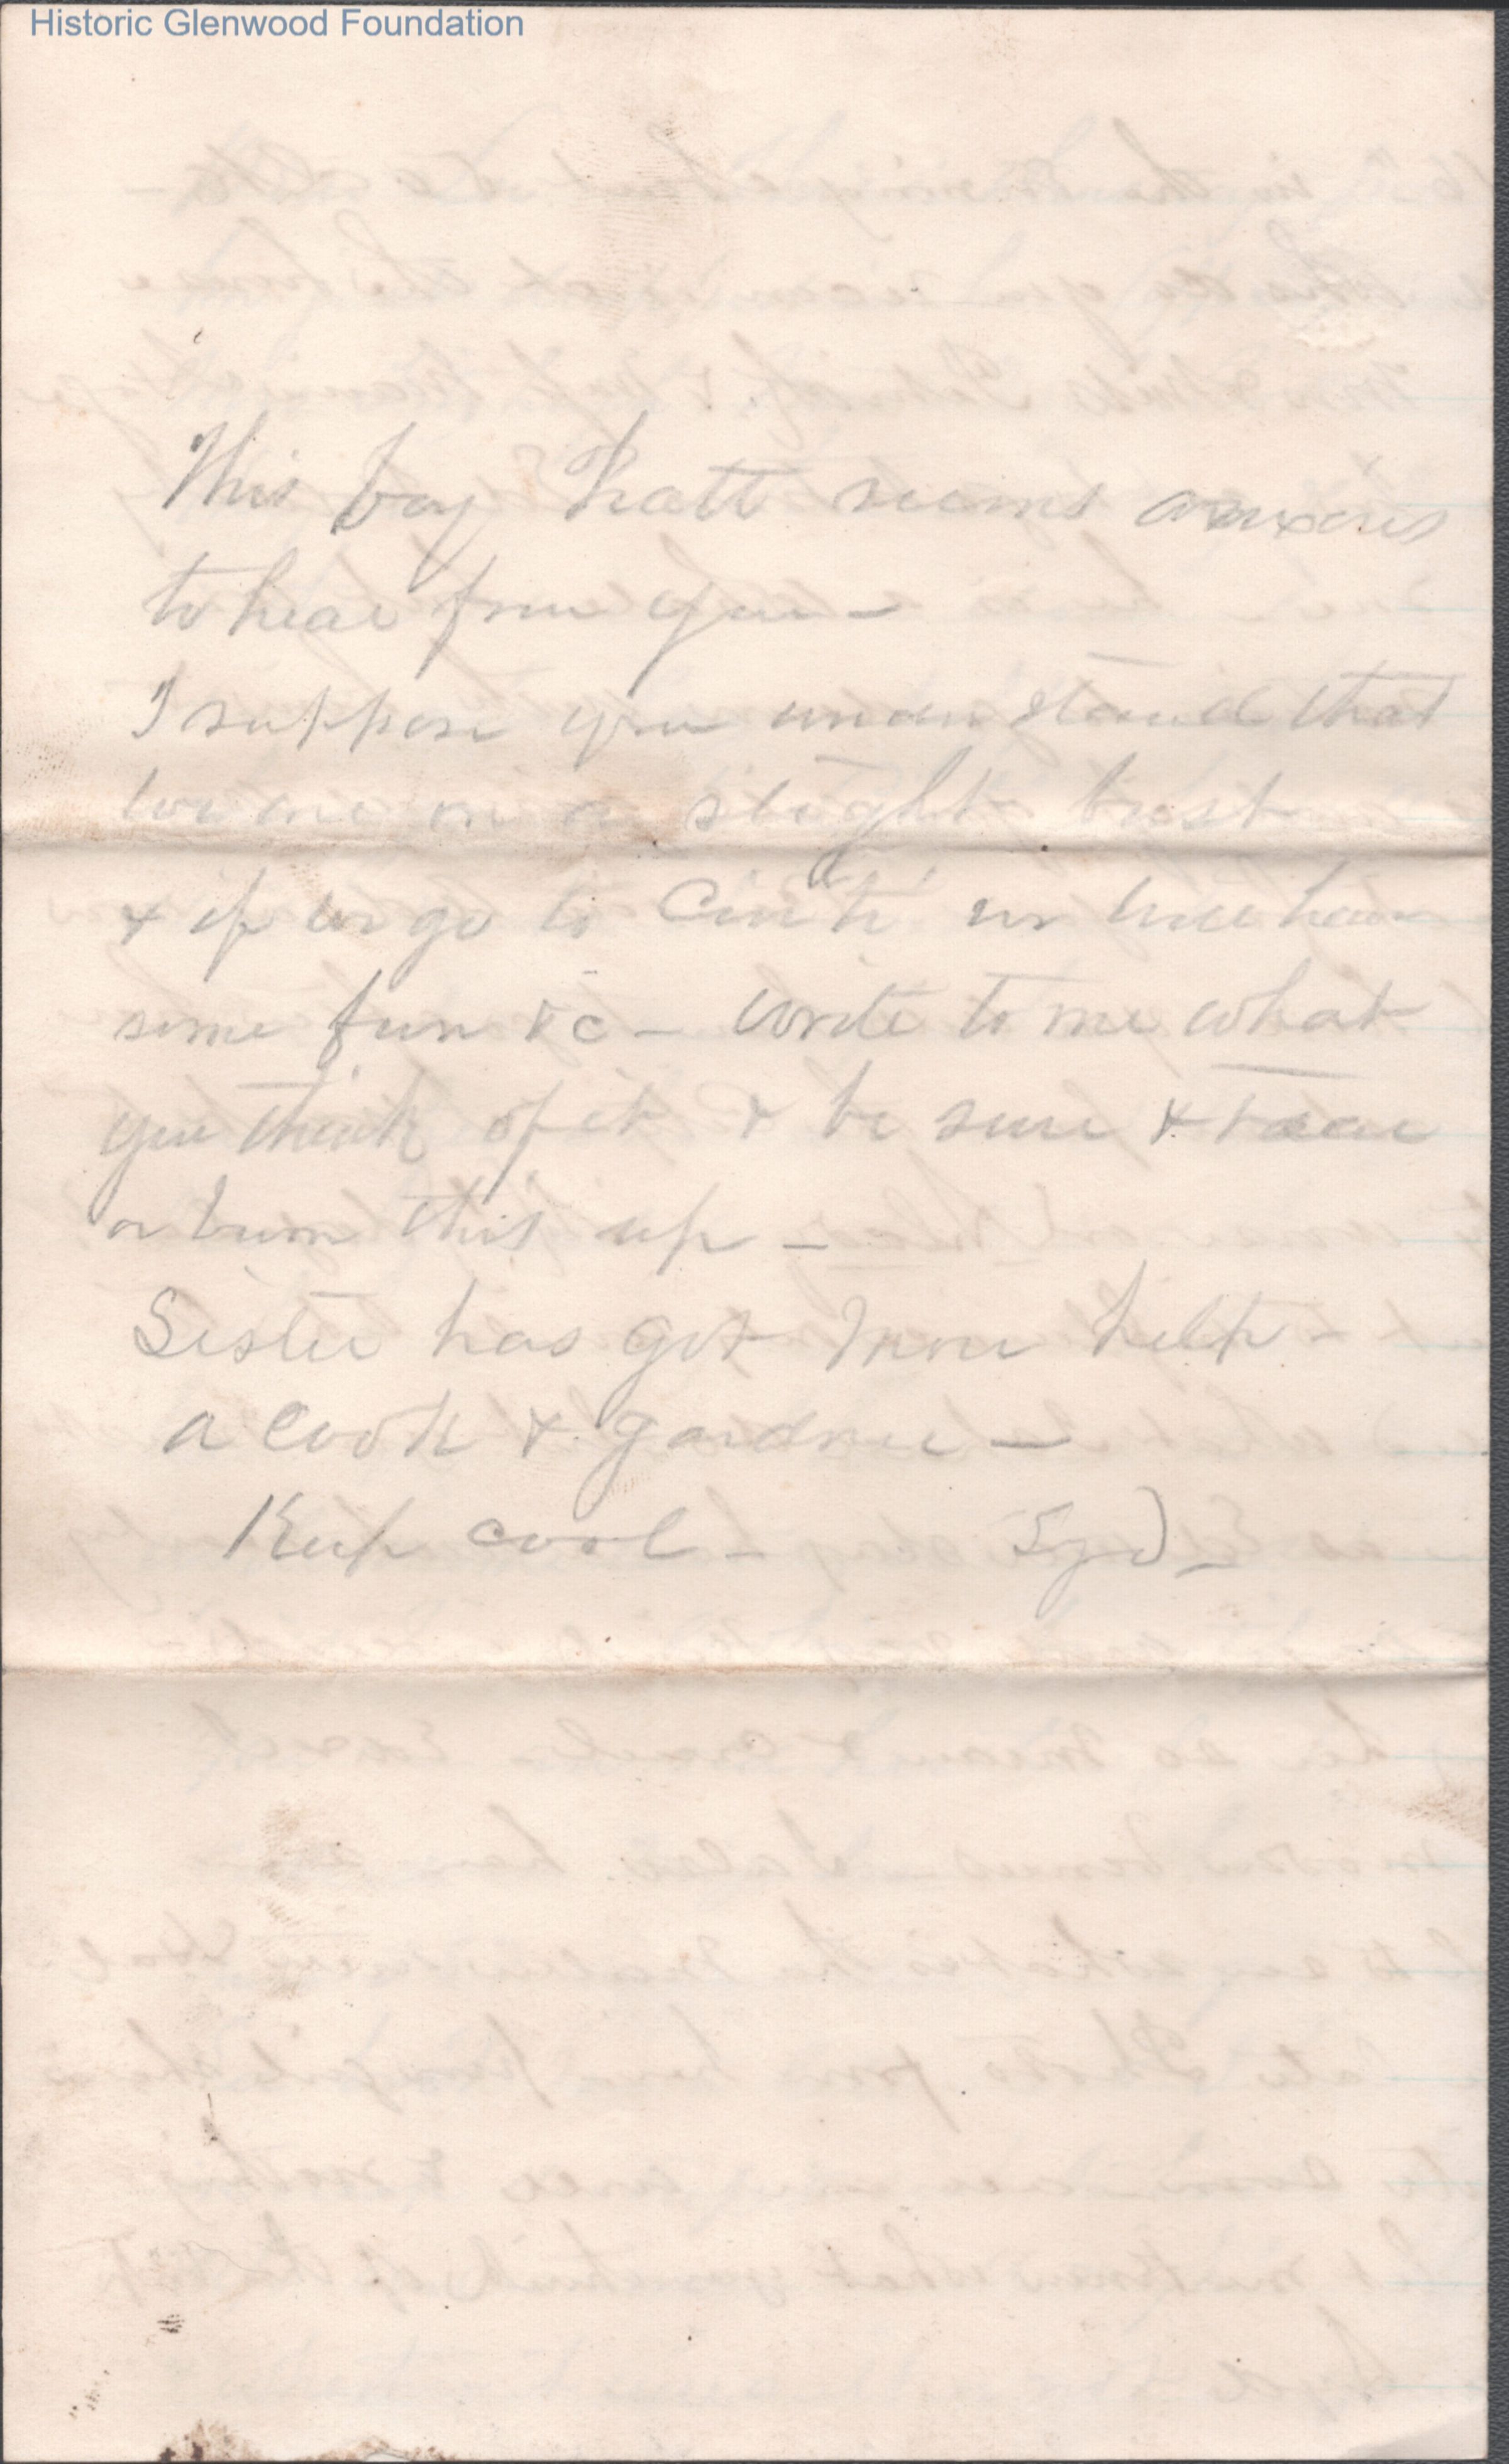 Historic Glenwood Foundation
This boy Hatt seems anxious
to hear from you —
I suppose you understand that
we are on a slight bust
& if we go to Cin'ti' we will have
some fun &c — Write to me what
you think of it & be sure & tear
or burn this up —
Sister has got more help —
a cook & gardner —
Keep cool — Syd —